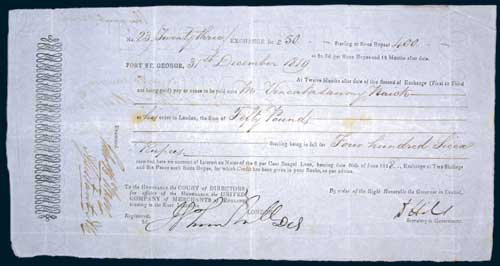 No. 23, Twenty three/ EXCHANGE for £ 50 Sterling or Sicca Rupees 400
at 2s. 6d per Sicca Rupee and 12 Months after date
FORT ST. GEORGE, 31st December 1819
At Twelve Months after date of this Second of Exchange (First or Third
not being paid) pay or cause to be paid unto Mr. Naick
or order in London, the Sum of Fifty Pounds
Sterling being in full for Four hundred Sicca
Rupees
received here on account of Interest on Notes of the 6 per Cent Bengal Loan, bearing date 30th of June Exchange at Two Shillings
and Six Pence each Sicca Rupee, for which Credit has been given in your Books, as per advice.
To the Honorable the COURT of DIRECTORS
for affairs of the Honorable the UNITED
COMPANY of MERCHANTS of ENGLAND
trading to the East
LONDON.
By order of the Right Honorable the Governor in Council,
Registered,
Secretary to Government.
Examined